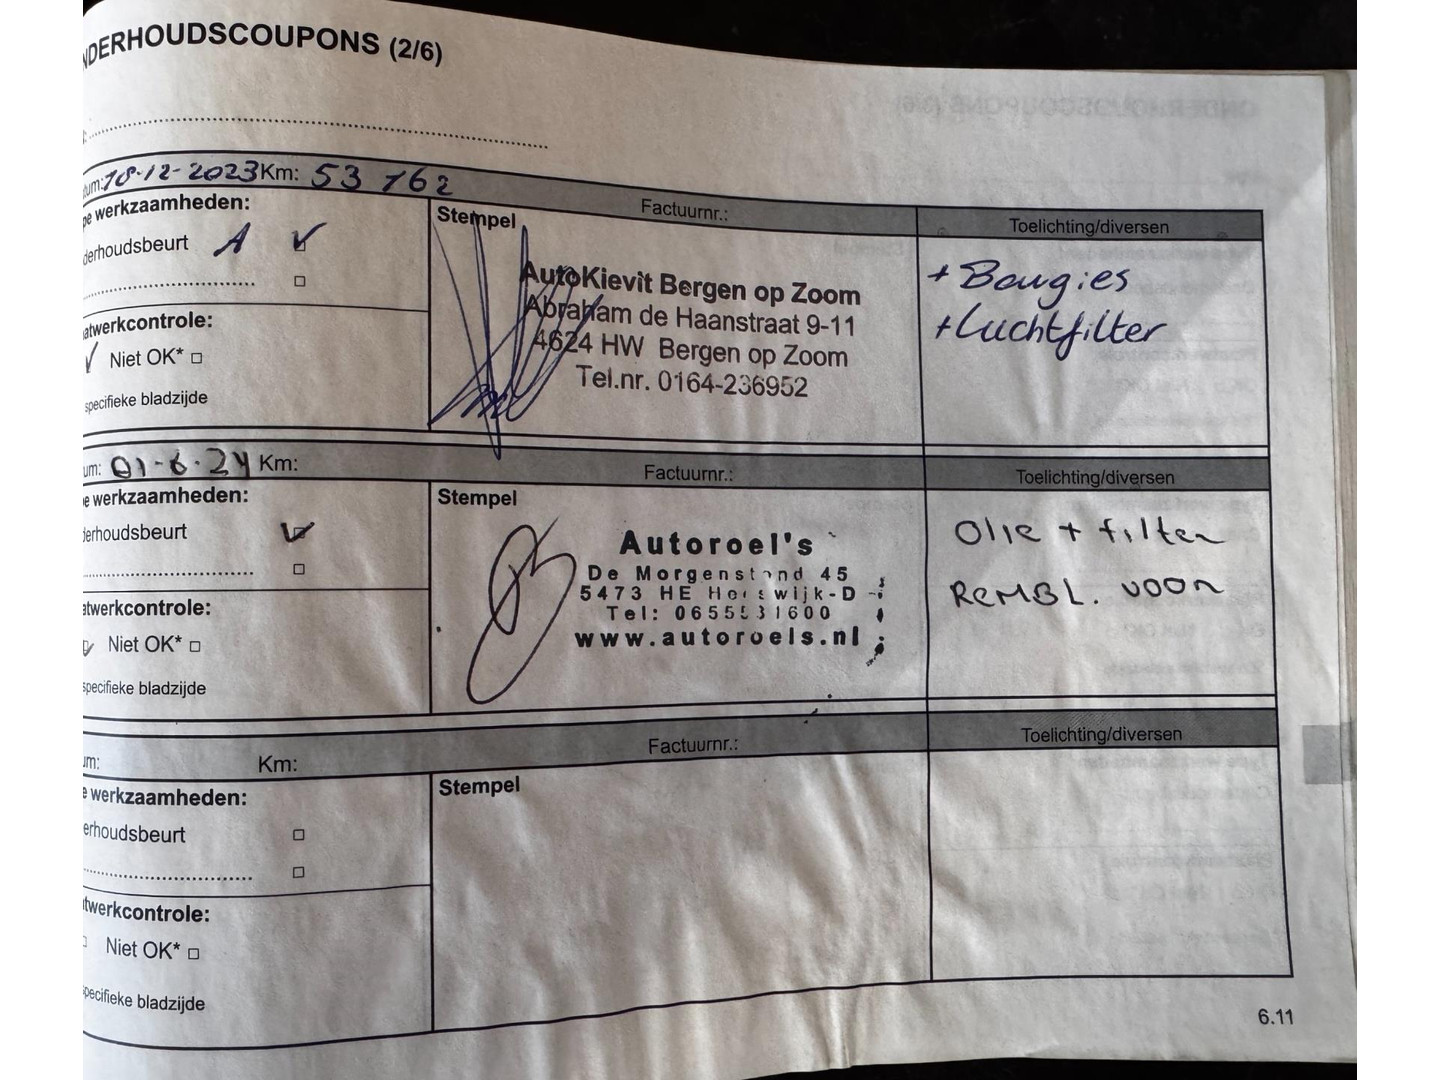 NDERHOUDSCOUPONS (2/6)
tum: 18-12-2023 Km: 53 762
Factuurnr.:
Toelichting/diversen
pe werkzaamheden:
Stempel
derhoudsbeurt A ✓
AutoKievit Bergen op Zoom
Abraham de Haanstraat 9-11
4624 HW Bergen op Zoom
Tel.nr. 0164-236952
+ Bougies
+ Luchtfilter
atwerkcontrole:
✓ Niet OK*
specifieke bladzijde
um: 01-6-24 Km:
Factuurnr.:
Toelichting/diversen
e werkzaamheden:
Stempel
derhoudsbeurt ✓
Autoroel's
De Morgenstond 45
5473 HE Heeswijk-D
Tel: 0655531600
www.autoroels.nl
Olie + filter
REMBL. VOOR
atwerkcontrole:
✓ Niet OK*
specifieke bladzijde
um: Km:
Factuurnr.:
Toelichting/diversen
e werkzaamheden:
Stempel
erhoudsbeurt
twerkcontrole:
Niet OK*
pecifieke bladzijde
6.11